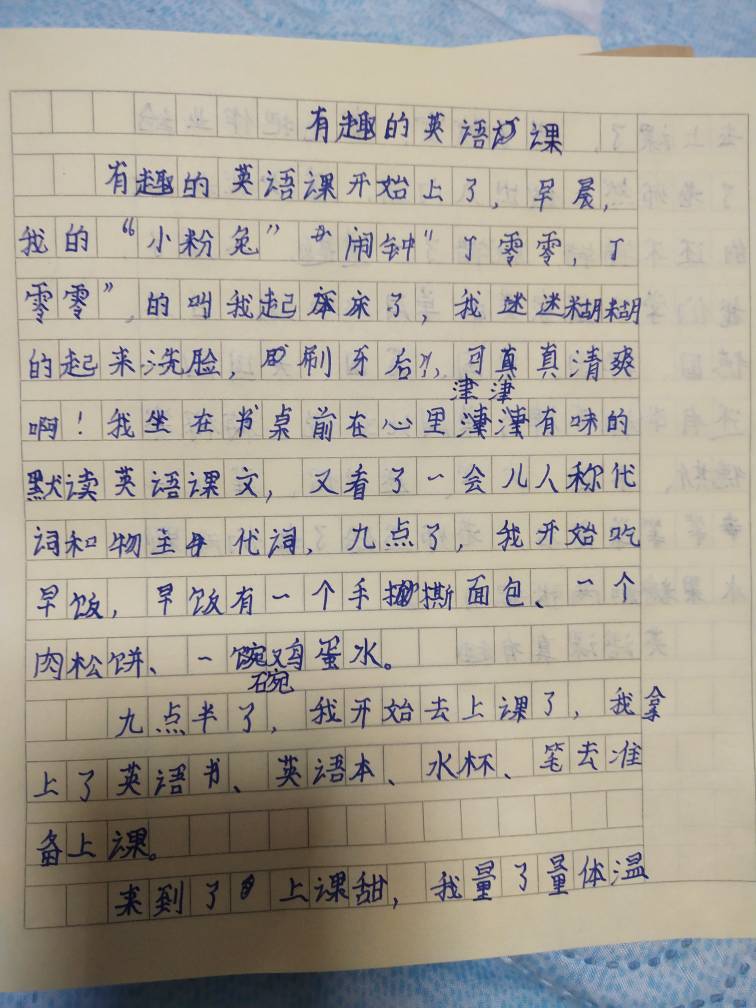 有趣的英语课
有趣的英语课开始上了，早晨，
我的“小粉兔”“闹钟“丁零零，丁
零零”，的叫我起床了，我迷迷糊糊
的起来洗脸，刷牙后，可真真清爽
津津
啊！我坐在书桌前在心里有味的
默读英语课文，又看了一会儿人称代
词和物主代词，九点了，我开始吃
早饭，早饭有一个手撕面包、一个
肉松饼、一碗鸡蛋水。
九点半了，我开始去上课了，我拿
上了英语书、英语本、水杯、笔去准
备上课。
来到了上课甜，我量了量体温